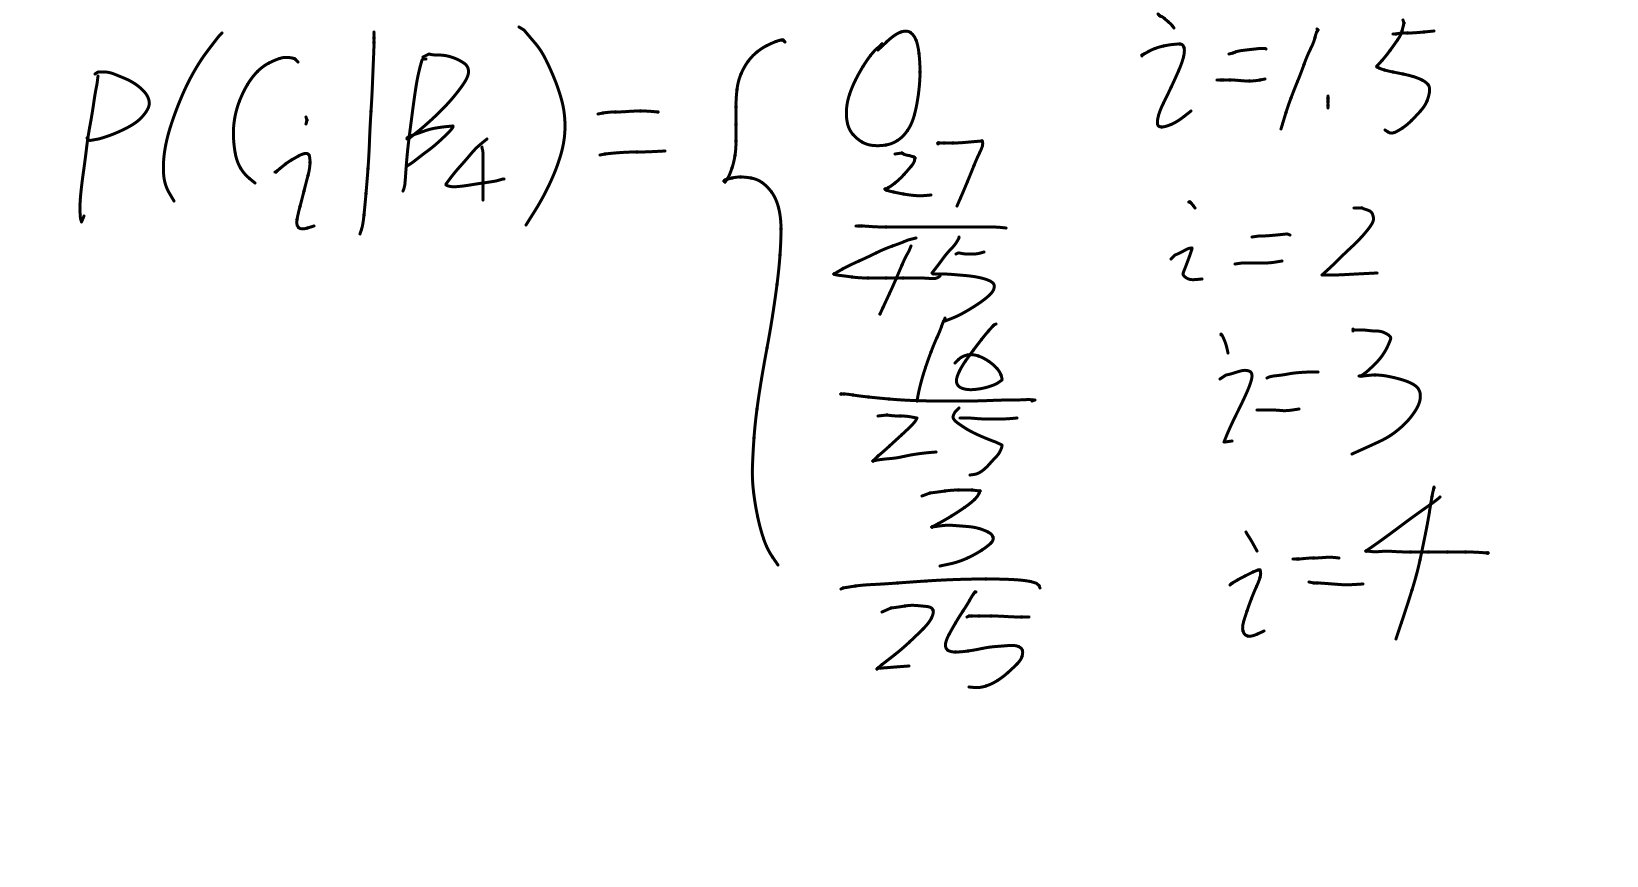 P(C_i|B_4) = { 0 i=1.5
27/45 i=2
16/25 i=3
3/25 i=4